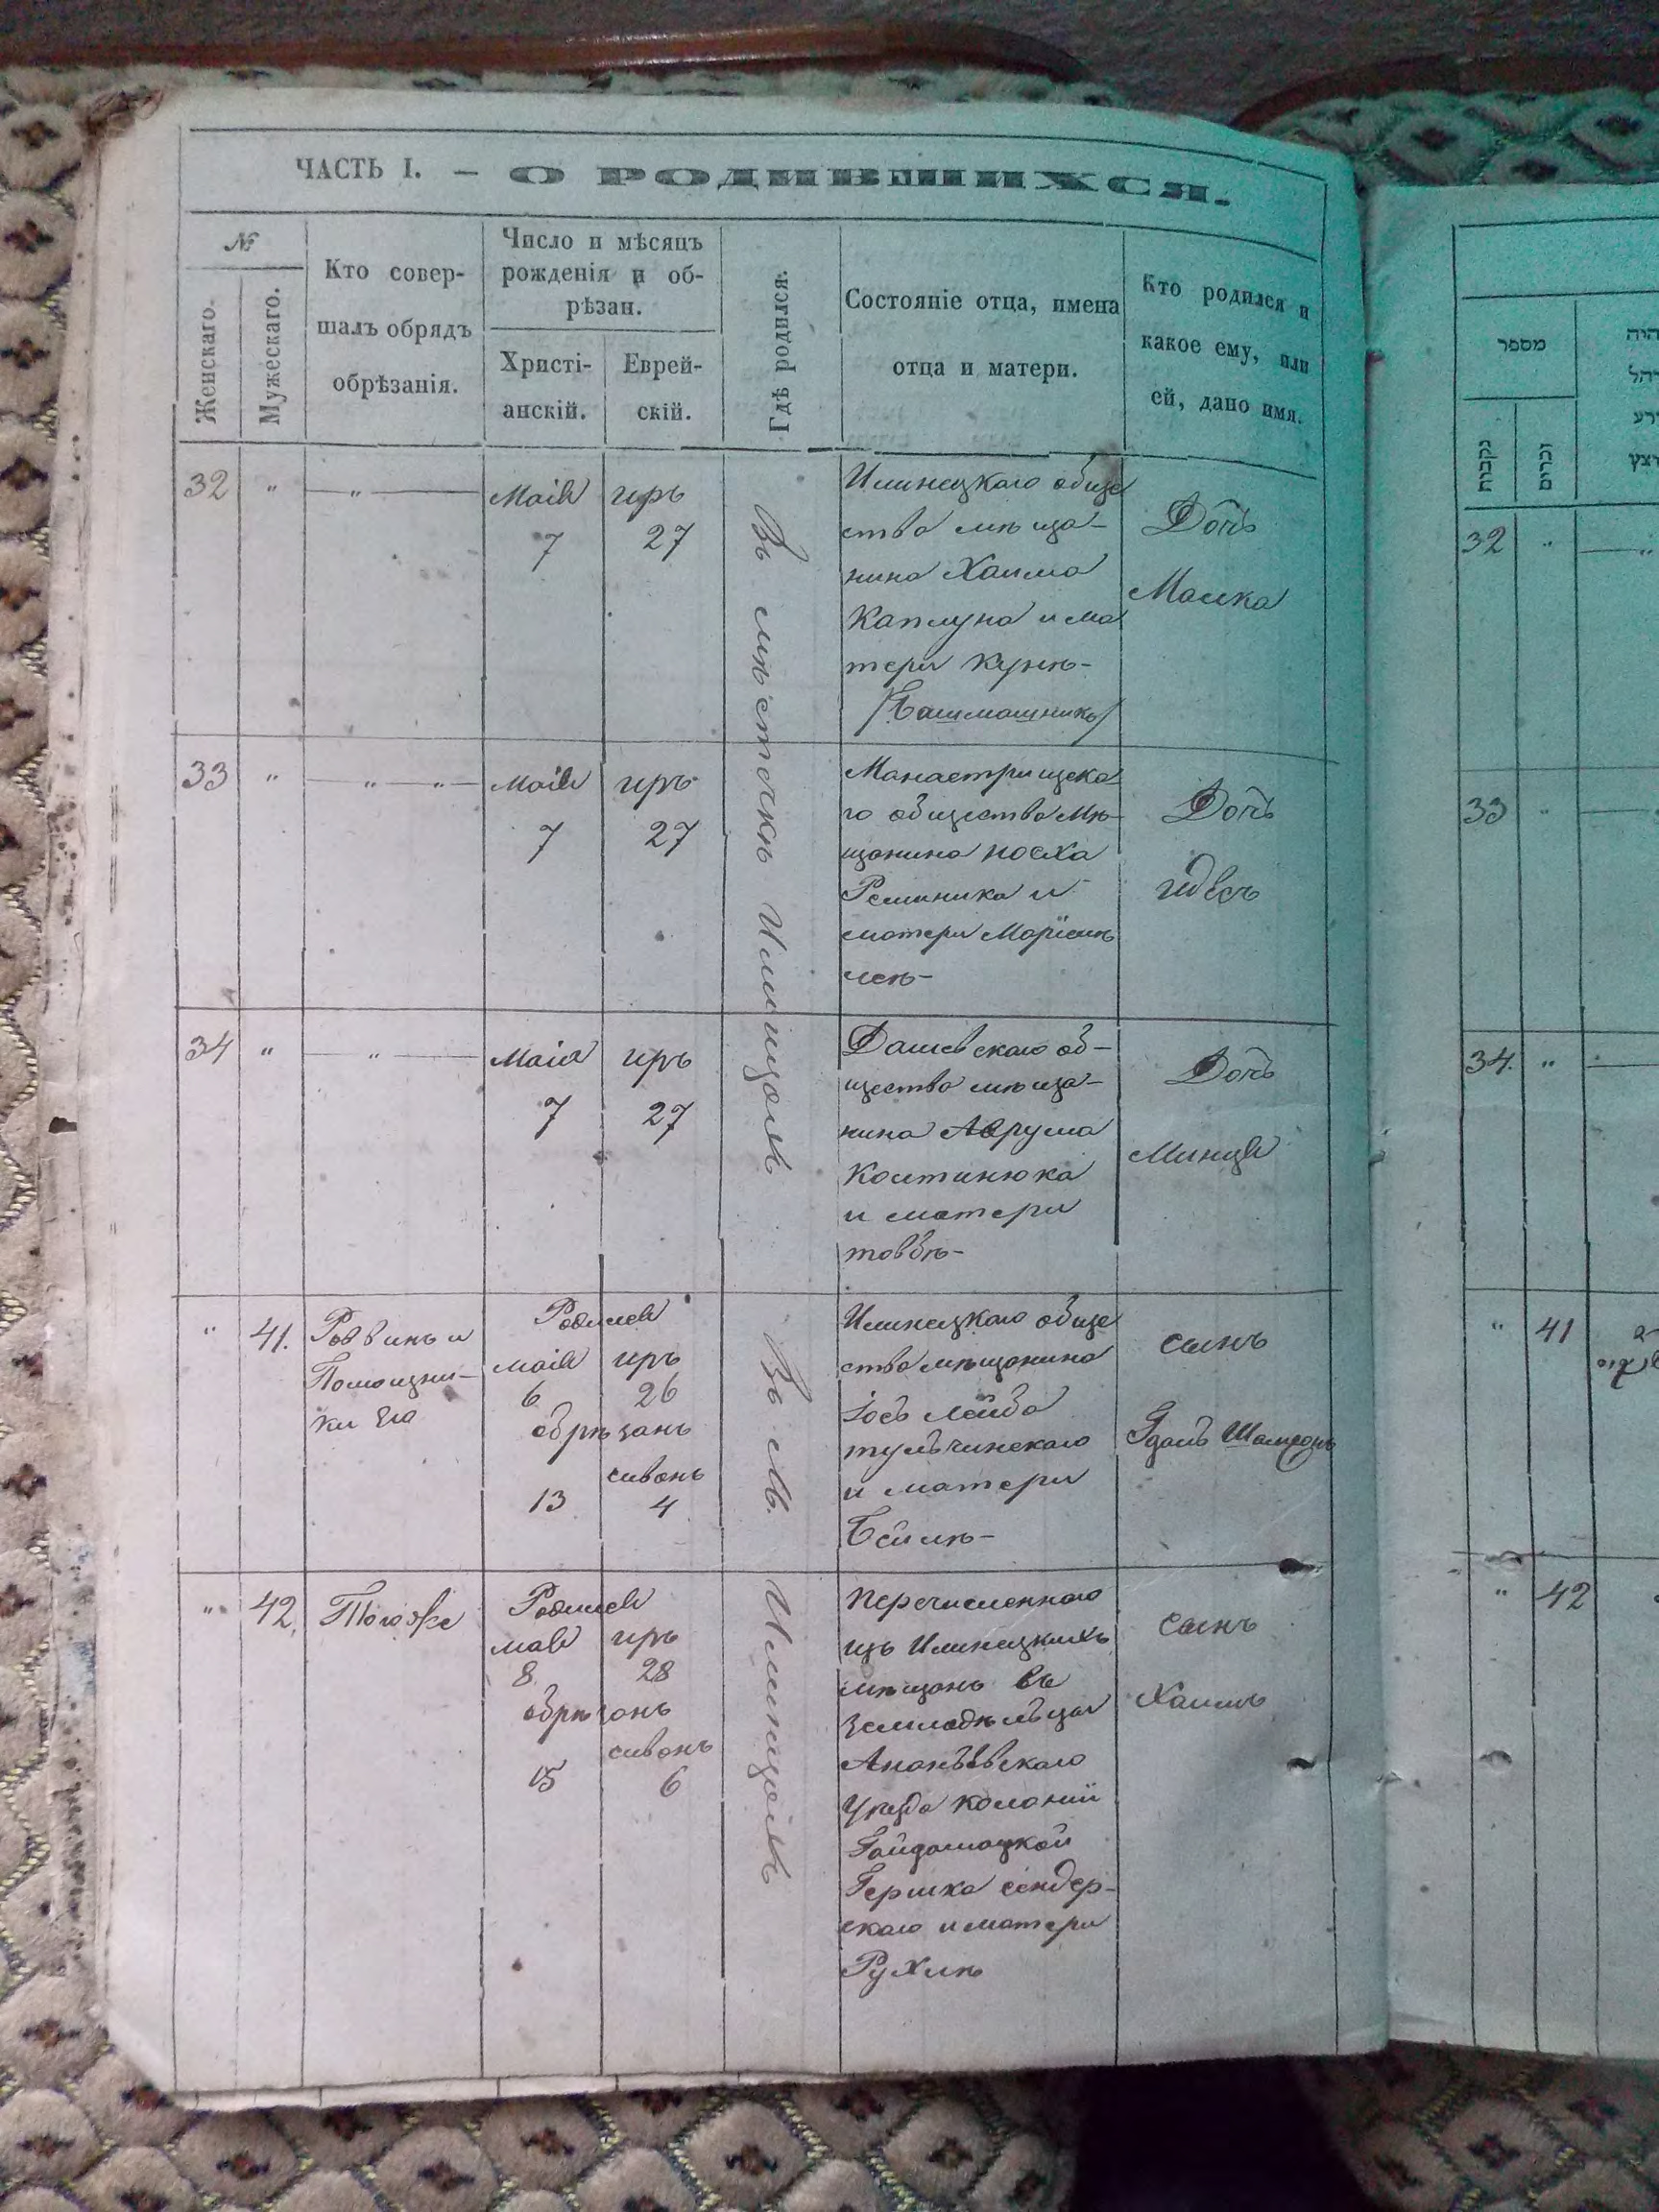 ЧАСТЬ I. — О РОДИВШИХСЯ.
№
Женскаго.
Мужескаго.
Кто совер-
шалъ обрядъ
обрѣзанія.
Число и мѣсяцъ
рожденія и об-
рѣзан.
Христі-
анскій.
Еврей-
скій.
Гдѣ родился.
Состояніе отца, имена
отца и матери.
Кто родился и
какое ему, или
ей, дано имя.
32 " — " —
Маія
7
иръ
27
Въ мѣстечкѣ Илинцахъ
Илинецкаго обще
ства мѣща-
нина Хаима
Каплуна и ма
тери Кунѣ-
/Башмашникъ/
Дочь
Малка
33 " — " " —
Маія
7
иръ
27
Манастрищска
го общества мѣ-
щанина Носха
и
матери
Дочь
34 " — " —
Маія
7
иръ
27
Дашевскаго об-
щества мѣща-
нина Аврума
Колтинюка
и матери
товбѣ-
Дочь
Минця
" 41.
Раввинъ и
Помощни-
ки Его
Родился
маія
6
иръ
26
обрѣзанъ
13
сивонъ
4
Въ м. Илинцахъ
Илинецкаго обще
ства мѣщанина
Іось Лейба
тульчинскаго
и матери
Бейлѣ-
сынъ
" 42.
Тотоже
Родился
мая
8
иръ
28
обрѣзанъ
15
сивонъ
6
Перечисленнаго
изъ Илинецкихъ
мѣщанъ въ
земледѣльца
Ананьевскаго
Уѣзда колоніи
Гайдамацкой
Гершка сендер-
скаго и матери
Рухлѣ
сынъ
Хаимъ
מספר
נקבות
זכרים
32 "
33 "
34. "
" 41
" 42